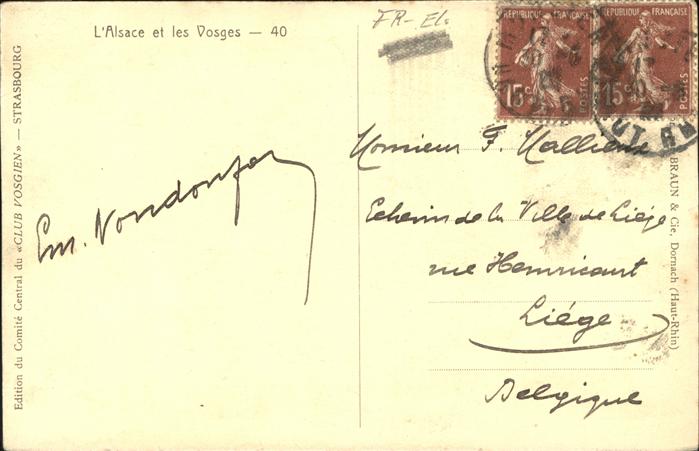 L'Alsace et les Vosges — 40
FR-El.
REPUBLIQUE FRANÇAISE
15c
POSTES
REPUBLIQUE FRANÇAISE
15c
POSTES
Monsieur F.
Echevin de la Ville de Liége
rue Hemricourt
Liége
Belgique
Em.
Edition du Comité Central du «CLUB VOSGIEN» — STRASBOURG
BRAUN & Cie, Dornach (Haut-Rhin)